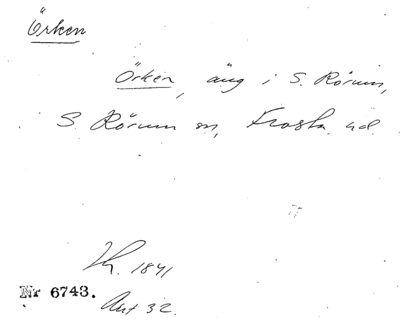 Örken
Örken, äng i S. Rörum,
S. Rörum sn, Frosta hd.
1841
Nr 6743.
Akt 32.